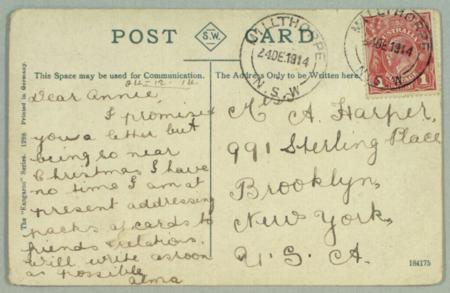 POST S.W. CARD
MILLTHORPE
24DE1914
N.S.W
MILLTHORPE
24DE1914
N.S.W
AUSTRALIA
1
This Space may be used for Communication.
The Address Only to be Written here.
The "Kangaroo" Series. 1298 Printed in Germany.
24-12-14
Dear Annie,
I promised
you a letter but
being so near
Christmas I have
no time I am at
present addressing
packs of cards to
friends & relations.
Will write as soon
as possible
Alma
A. Harper,
991 Sterling Place
Brooklyn,
New York,
U. S. A.
184175